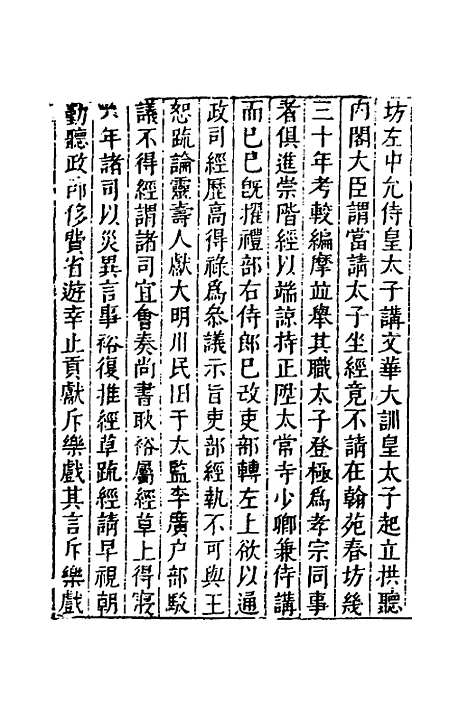 坊左中允侍皇太子講文華大訓皇太子起立拱聽
內閣大臣謂當請太子坐經竟不請在翰苑春坊幾
三十年考較編摩並舉其職太子登極為孝宗同事
者俱進崇階經以端諒持正陞太常寺少卿兼侍講
而已巳旣擢禮部右侍郎巳改吏部轉左上欲以通
政司經歷高得祿為叅議示旨吏部經執不可與王
恕疏論靈壽人獻大明川民田于太監李廣户部駁
議不得經謂諸司宜會奏尚書耿裕屬經草上得寢
六年諸司以災異言事裕復推經草疏經請早視朝
勤聽政節侈費省遊幸止貢獻斥樂戲其言斥樂戲